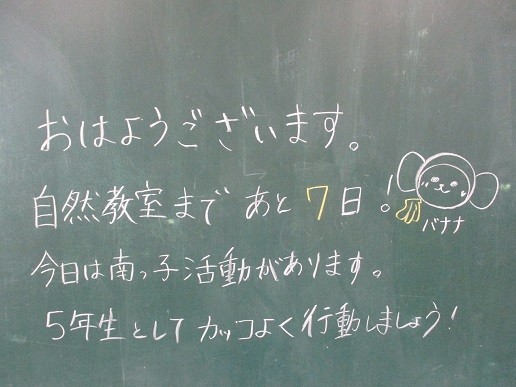 おはようございます。
自然教室まで あと 7 日!
バナナ
今日は南っ子活動があります。
5年生として カッコよく行動しましょう!